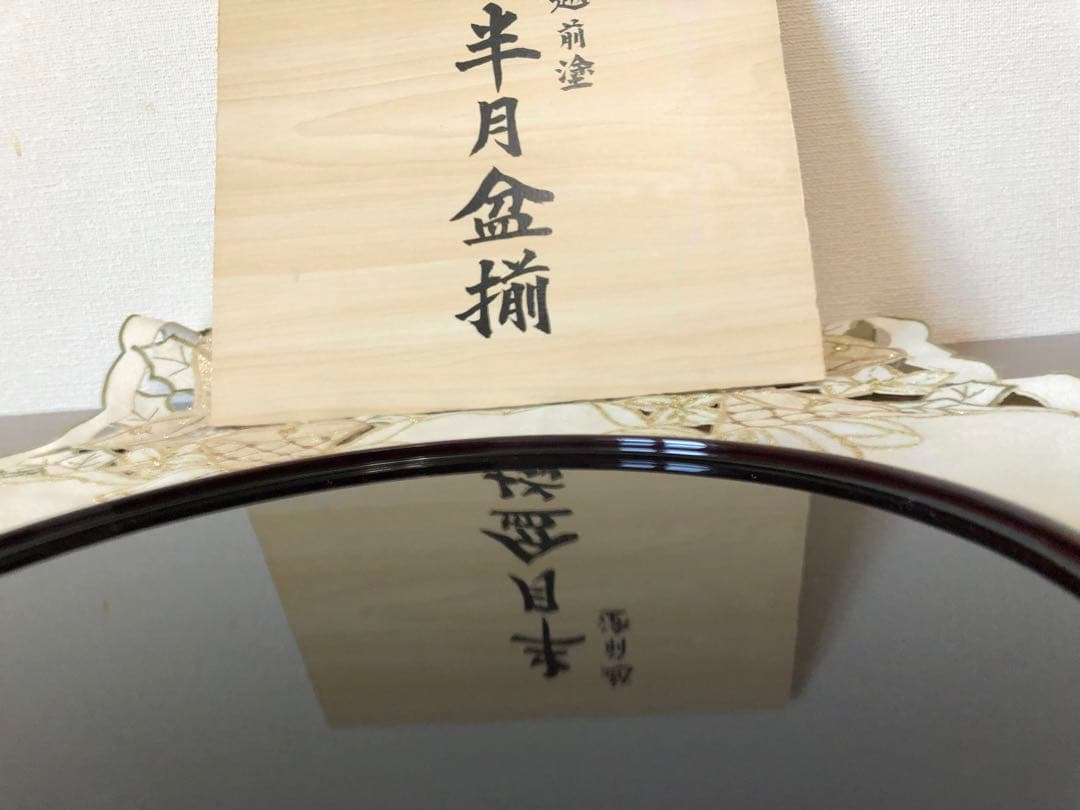 越前塗
半月盆揃